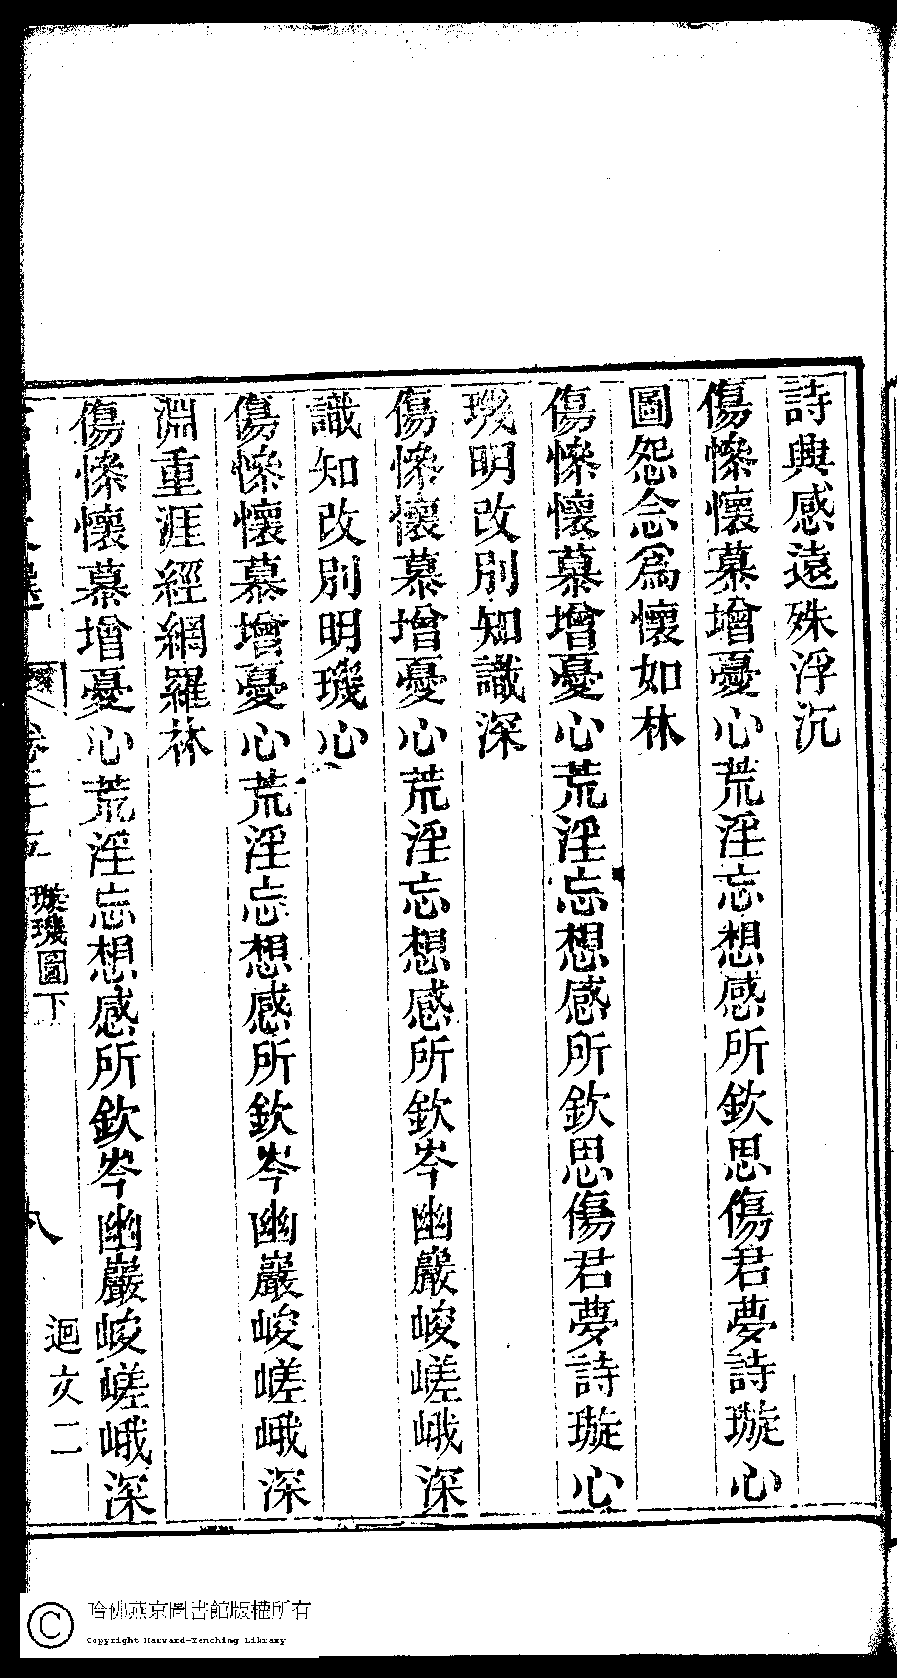 詩興感遠殊浮沉
傷慘懷慕增憂心荒淫忘想感所欽思傷君夢詩璇心
圖怨念爲懷如林
傷慘懷慕增憂心荒淫忘想感所欽思傷君夢詩璇心
璣明改別知識深
傷慘懷慕增憂心荒淫忘想感所欽岑幽巖峻嵯峨深
識知改別明璣心
傷慘懷慕增憂心荒淫忘想感所欽岑幽巖峻嵯峨深
淵重涯經網羅林
傷慘懷慕增憂心荒淫忘想感所欽岑幽巖峻嵯峨深
卷二十五
璇璣圖下
八
迴文二
哈佛燕京圖書館版權所有
Copyright Harvard-Yenching Library